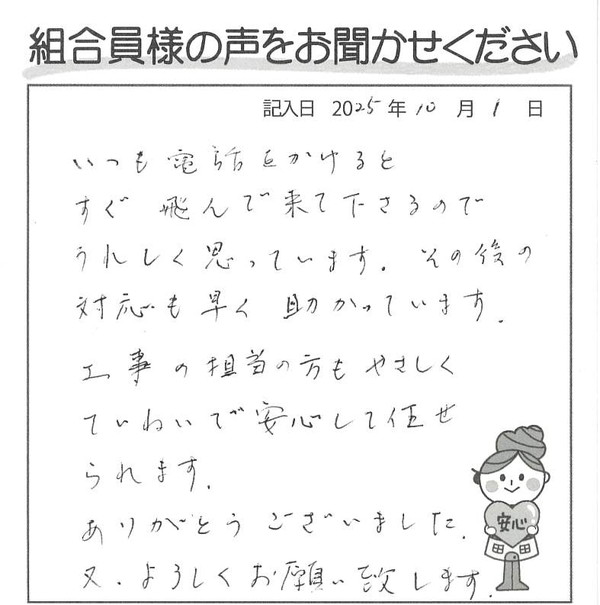 組合員様の声をお聞かせください
記入日 2025年10月1日
いつも電話をかけると
すぐ飛んで来て下さるので
うれしく思っています。その後の
対応も早く助かっています。
工事の担当の方もやさしく
ていねいで安心して任せ
られます。
ありがとうございました。
又、よろしくお願い致します。
安心